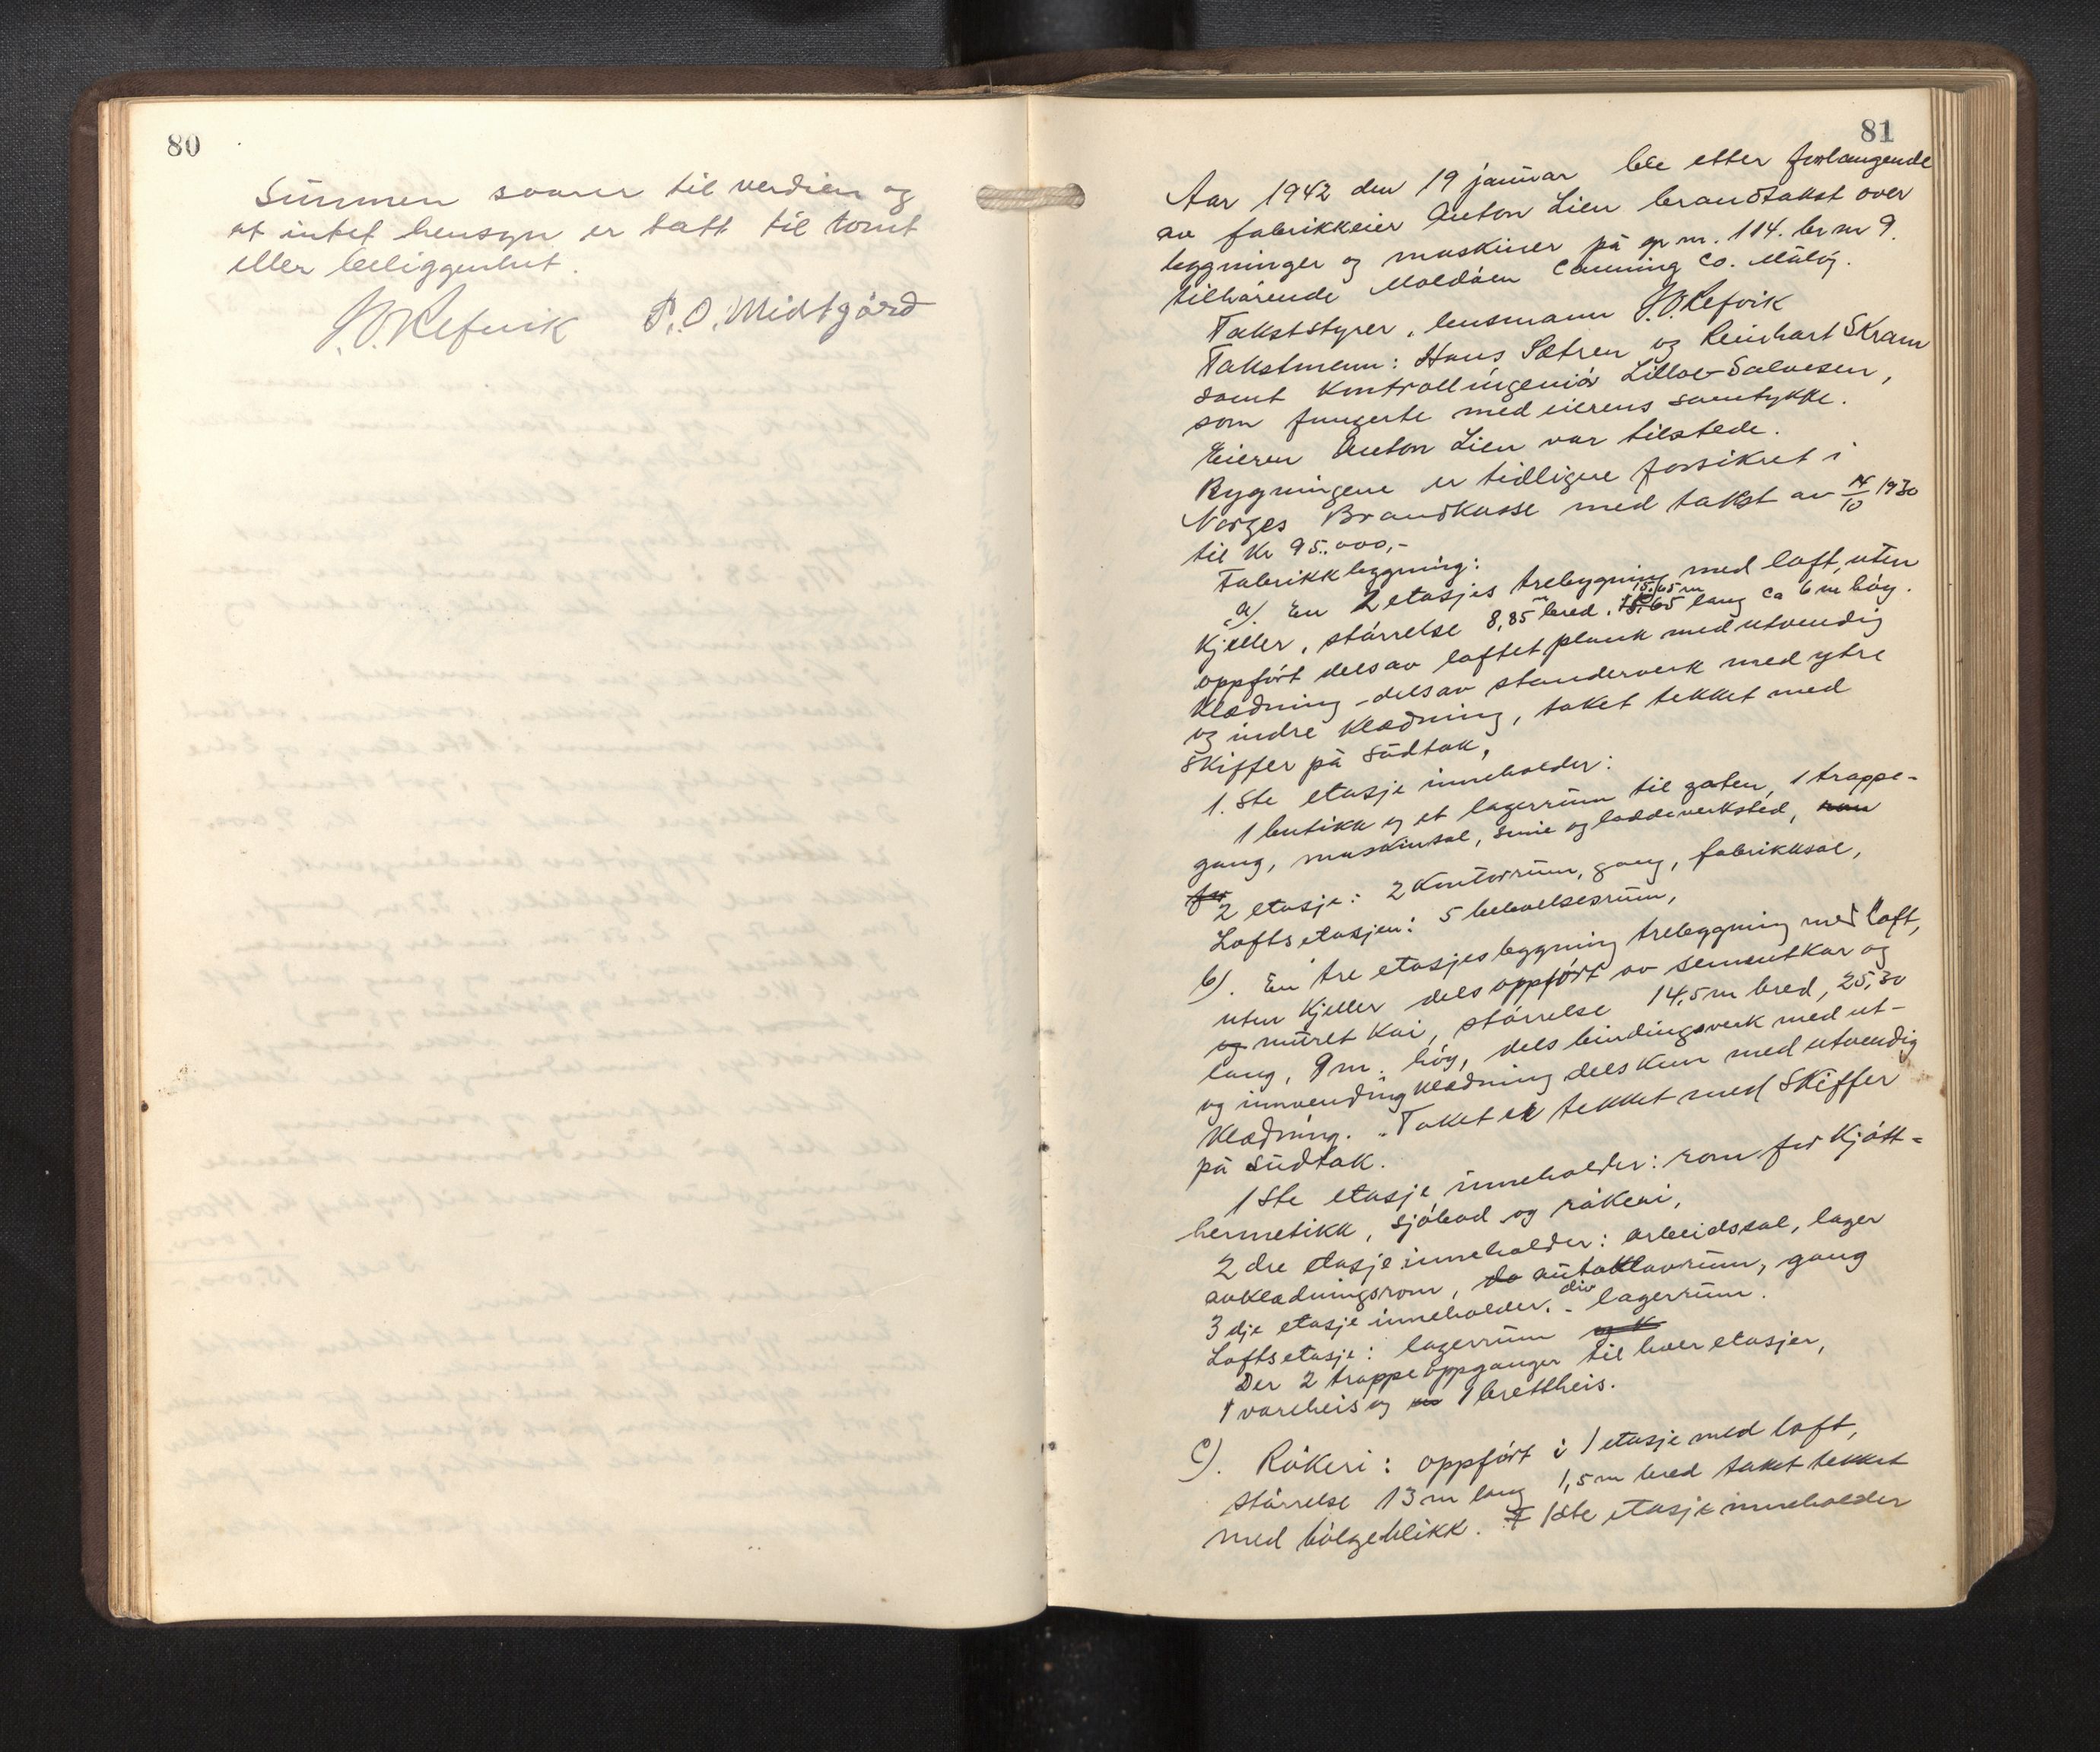 80
Summen svarer til verdien og
at intet hensyn er tatt til tomt
eller beliggenhet.
J.O. Refvik P.O. Midtgård
81
Aar 1942 den 19 januar ble etter forlangende
av fabrikkeier Anton Lien brandtakst over
bygninger og maskiner på gr nr. 114. br nr 9.
tilhørende Moldøen Canning Co. Måløy.
Takststyrer, lensmann J.O. Refvik
Takstmenn: Hans Sætren og Reinhart Skram
samt kontrollingeniør Lilloe-Salvesen,
som fungerte med eierens samtykke.
Eieren Anton Lien var tilstede.
Bygningene er tidligere forsikret i
Norges Brandkasse med takst av 14/10 1930
til kr 95.000,-
Fabrikkbygning:
a). En 2 etasjes trebygning med loft, uten
kjeller, størrelse 8,85 m bred. 15,65 m lang ca 6 m høy.
oppført dels av laftet plank med utvendig
klædning - dels av standerverk med ytre
og indre klædning, taket tekket med
skiffer på sudtak,
1.ste etasje inneholder:
1 butikk og et lagerrum til gaten, 1 trappe-
gang, maskinsal, smie og loddeverksted, rom
for
2 etasje: 2 kontorrum, gang, fabrikksal,
Loftsetasjen: 5 beboelsesrum,
b). En tre etasjes bygning trebygning med loft,
uten kjeller dels oppført av sementkar og
og muret kai, størrelse 14,5 m bred, 25,30
lang, 9 m. høy, dels bindingsverk med ut-
og innvendig klædning dels kun med utvendig
klædning. - Taket er tekket med skiffer
på sudtak.
1 ste etasje inneholder: rom for kjøtt=
hermetikk, sjøbod og røkeri,
2 dre etasje inneholder: arbeidssal, lager
avklædningsrom, do autoklavrum, gang
3 dje etasje inneholder. - div lagerrum.
Loftsetasje: lagerrum og k
Der 2 trappeoppganger til hver etasjer,
1 vareheis og en 1 brettheis.
c). Røkeri: oppført i 1 etasje med loft,
størrelse 13 m lang 1,5 m bred taket tekket
med bølgeblikk. I 1ste etasje inneholder